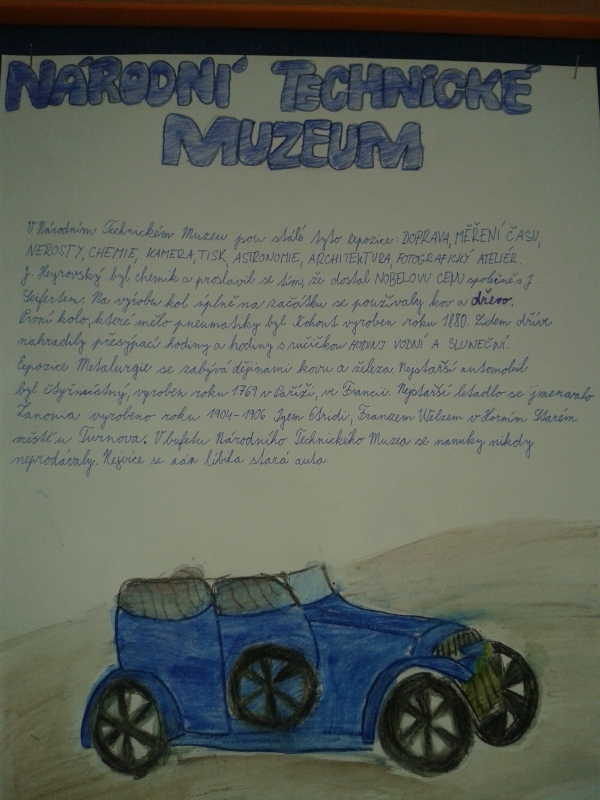 NÁRODNÍ TECHNICKÉ
MUZEUM
V Národním Technickém Muzeu jsou stálé tyto expozice: DOPRAVA, MĚŘENÍ ČASU,
NEROSTY, CHEMIE, KAMERA, TISK, ASTRONOMIE, ARCHITEKTURA, FOTOGRAFICKÝ ATELIÉR.
J. Heyrovský byl chemik a proslavil se tím, že dostal NOBELOVU CENU společně s J.
Seifertem. Na výrobu kol úplně na začátku se používaly kov a dřevo.
První kolo, které mělo pneumatiky byl Kohout vyroben roku 1880. Lidem dříve
nahradily přesýpací hodiny a hodiny s ručičkou HODINY VODNÍ A SLUNEČNÍ.
Expozice Metalurgie se zabývá dějinami kovu a železa. Nejstarší automobil
byl čtyřmístný, vyroben roku 1769 v Paříži, ve Francii. Nejstarší letadlo se jmenovalo
Zanonia vyrobeno roku 1904-1906 Igem Etridi, Franzem Welzem v Horním Starém
městě u Turnova. V bufetu Národního Technického Muzea se nanuky nikdy
neprodávaly. Nejvíce se nám líbila stará auta